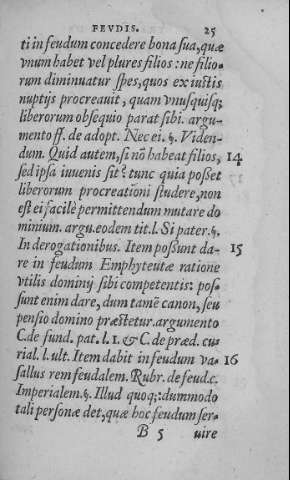 FEVDIS. 25
ti in feudum concedere bona sua, quæ
vnum habet vel plures filios: ne filio-
rum diminuatur spes, quos ex iustis
nuptijs procreauit, quam vnusquisq;
liberorum obsequio parat sibi. argu-
mento ff. de adopt. Nec ei. §. Viden-
dum. Quid autem, si nõ habeat filios, 14
sed ipsa iuuenis sit? tunc quia posset
liberorum procreationi studere, non
est ei facilè permittendum mutare do
minium. argu. eodem tit. l. Si pater. §.
In derogationibus. Item possunt da- 15
re in feudum Emphyteutæ ratione
vtilis dominij sibi competentis: pos-
sunt enim dare, dum tamẽ canon, seu
pensio domino præstetur. argumento
C. de fund. pat. l. 1. & C. de præd. cu-
rial. l. vlt. Item dabit in feudum va- 16
sallus rem feudalem. Rubr. de feud. c.
Imperialem. §. Illud quoq;: dummodo
tali personæ det, quæ hoc feudum ser-
B 5 uire